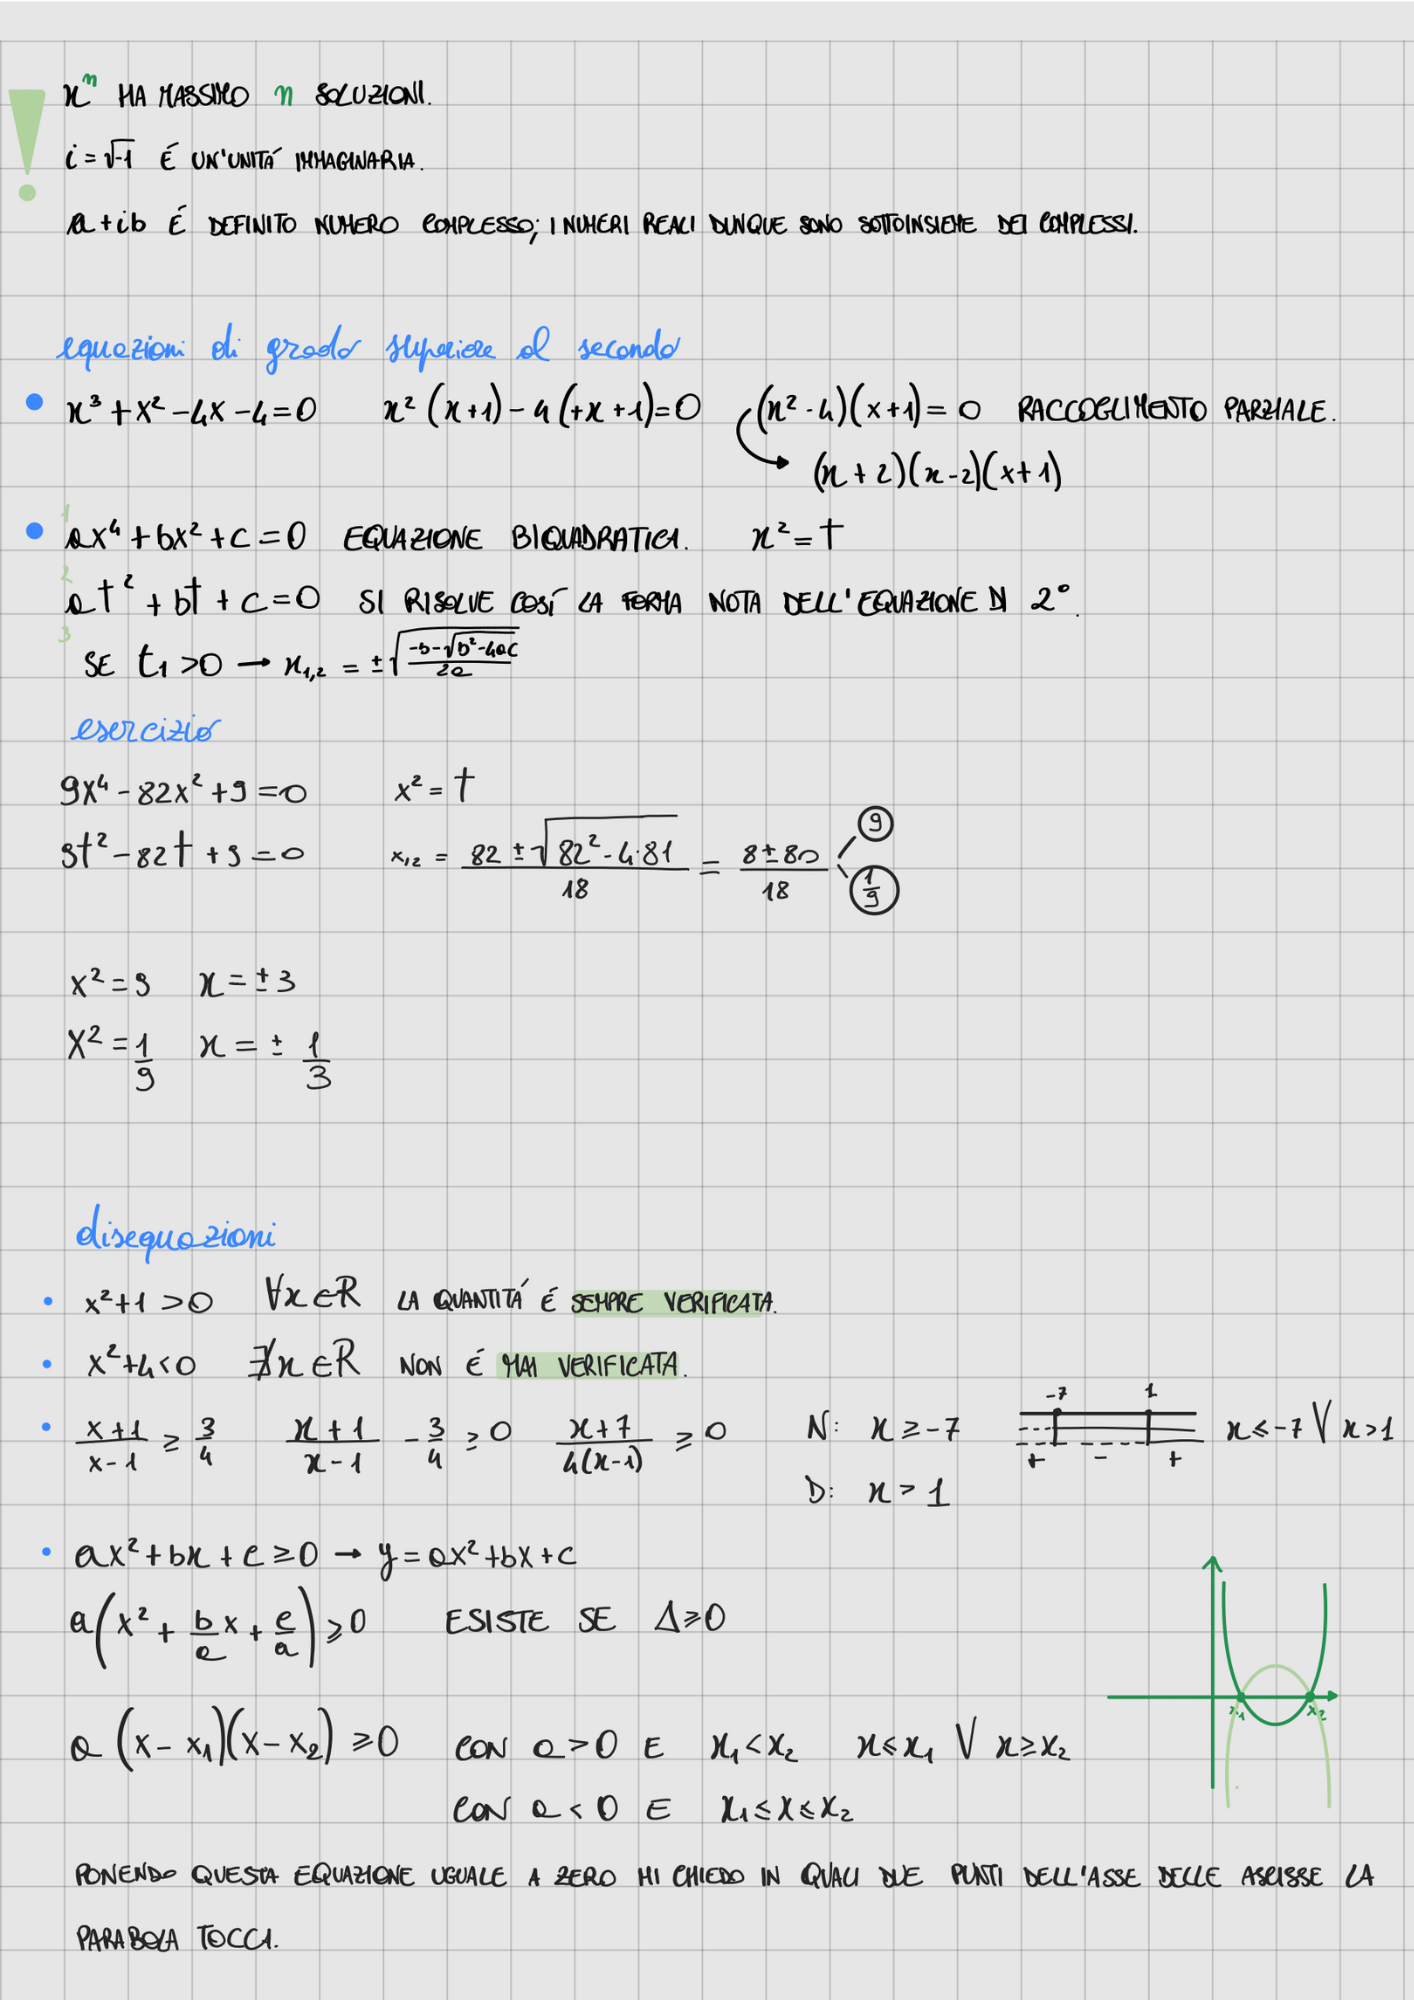 xⁿ HA MASSIMO n SOLUZIONI.
i = √-1 É UN'UNITÁ IMMAGINARIA.
a + ib É DEFINITO NUMERO COMPLESSO; I NUMERI REALI DUNQUE SONO SOTTOINSIEME DEI COMPLESSI.
equazioni di grado superiore al secondo
x³ + x² - 4x - 4 = 0 x² (x+1) - 4 (+x+1) = 0 (x² - 4)(x+1) = 0 RACCOGLIMENTO PARZIALE.
(x+2)(x-2)(x+1)
1 ax⁴ + bx² + c = 0 EQUAZIONE BIQUADRATICA. x² = t
2 at² + bt + c = 0 SI RISOLVE COSÍ LA FORMA NOTA DELL'EQUAZIONE DI 2°.
3 SE t₁ > 0 → x₁,₂ = ±√((-b-√(b²-4ac))/2a)
esercizio
9x⁴ - 82x² + 9 = 0 x² = t
9t² - 82t + 9 = 0 x₁,₂ = (82 ± √(82² - 4·81))/18 = (8 ± 80)/18 9 1/9
x² = 9 x = ± 3
x² = 1/9 x = ± 1/3
disequazioni
x² + 1 > 0 ∀x ∈ R LA QUANTITÁ É SEMPRE VERIFICATA.
x² + 4 < 0 ∄x ∈ R NON É MAI VERIFICATA.
(x+1)/(x-1) ≥ 3/4 (x+1)/(x-1) - 3/4 ≥ 0 (x+7)/(4(x-1)) ≥ 0 N: x ≥ -7 -7 1 + - + x ≤ -7 ∨ x > 1
D: x > 1
ax² + bx + c ≥ 0 → y = ax² + bx + c
a(x² + b/a x + c/a) ≥ 0 ESISTE SE Δ ≥ 0
x₁ x₂
a (x - x₁)(x - x₂) ≥ 0 CON a > 0 E x₁ < x₂ x ≤ x₁ ∨ x ≥ x₂
CON a < 0 E x₁ ≤ x ≤ x₂
PONENDO QUESTA EQUAZIONE UGUALE A ZERO MI CHIEDO IN QUALI DUE PUNTI DELL'ASSE DELLE ASCISSE LA
PARABOLA TOCCA.